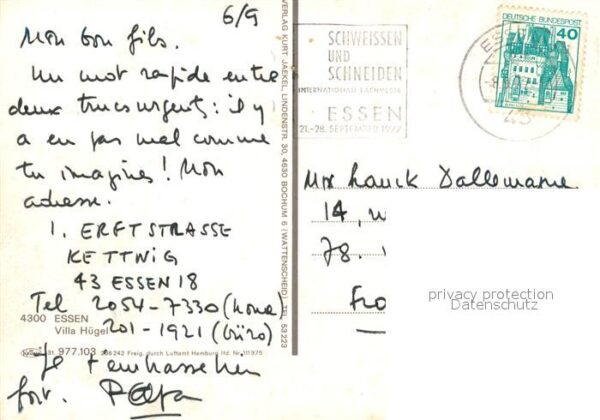 6/9
Mon bon fils.
Un mot rapide entre
deux trucs urgents : il y
a en pas mal comme
tu imagines ! Mon
adresse.
1, ERFTSTRASSE
KETTWIG
43 ESSEN 18
Tel 2054-7330 (home)
4300 ESSEN
Villa Hügel
201-1921 (büro)
St. 977.103 Freig. durch Luftamt Hamburg
Je t'embrasse bien
fort. Papa
VERLAG KURT JAEKEL, LINDENSTR. 30, 4630 BOCHUM 6 (WATTENSCHEID), TEL. 53 223
SCHWEISSEN
UND
SCHNEIDEN
INTERNATIONALE FACHMESSE
ESSEN
21.-28. SEPTEMBER 1977
DEUTSCHE BUNDESPOST
40
43
Dallemagne
14,
78.
privacy protection
Datenschutz